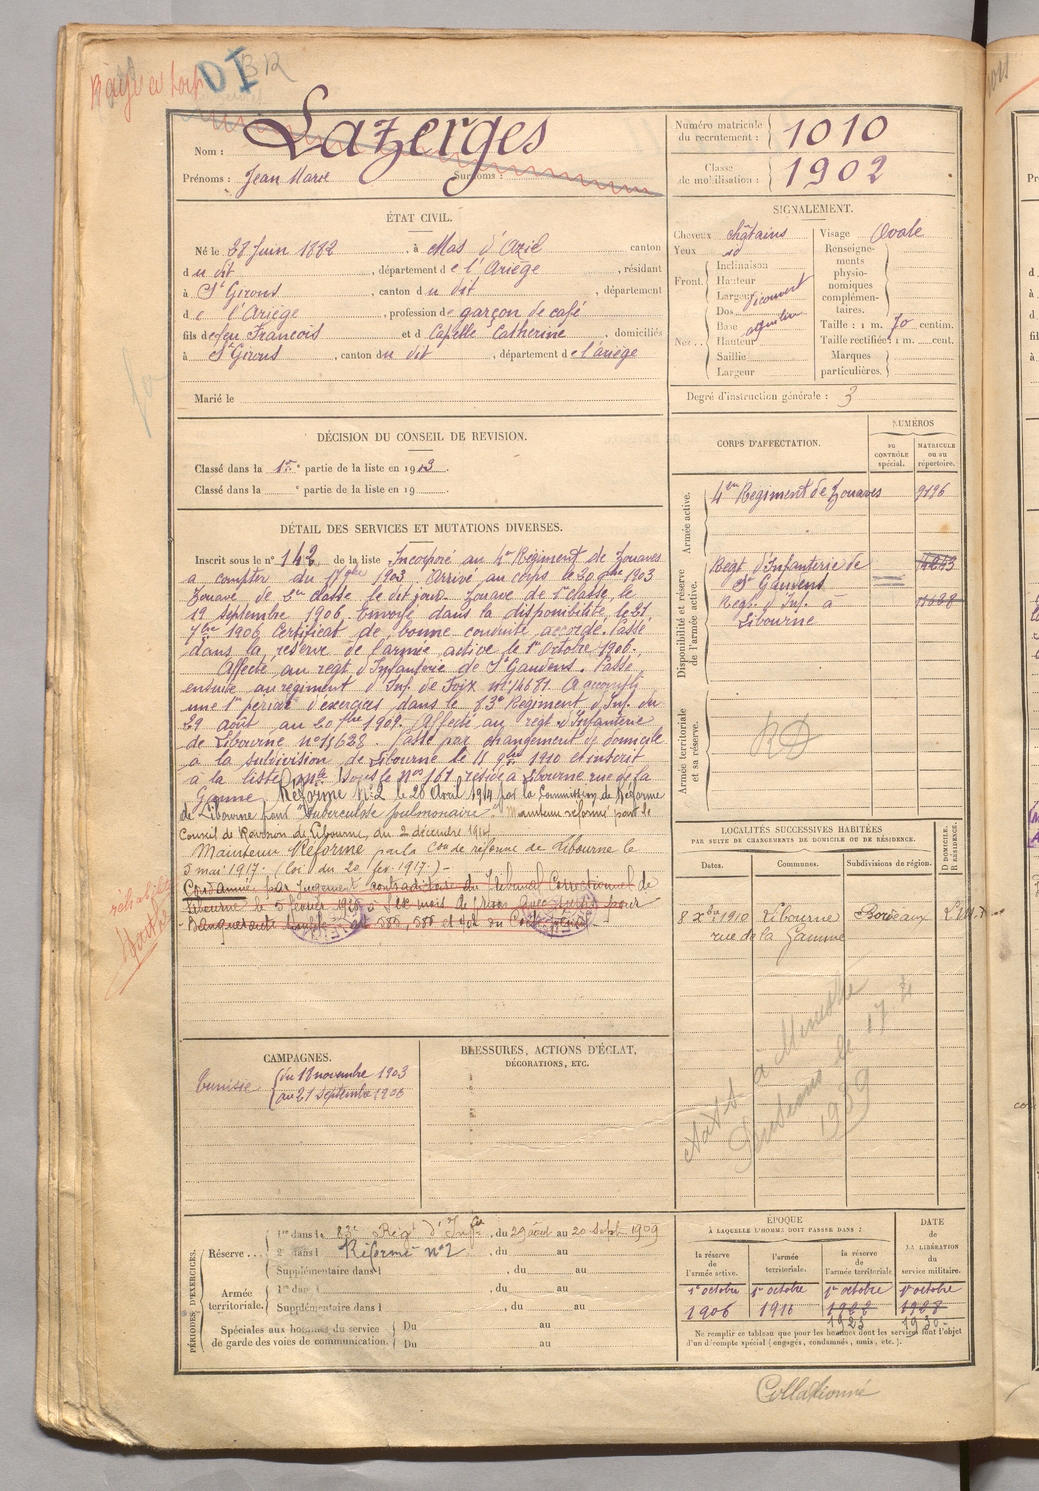 DI BR
Nom : Lazerges
Prénoms : Jean Marie Surnoms :
Numéro matricule du recrutement : 1010
Classe de mobilisation : 1902
ÉTAT CIVIL.
Né le 28 Juin 1882, à Mas d'Azil canton
du dit, département de l'Ariège, résidant
à St Girons, canton du dit, département
de l'Ariège, profession de garçon de café
fils de feu Francois et d Capelle Catherine, domiciliés
à St Girons, canton du dit, département de l'ariège
Marié le
SIGNALEMENT.
Cheveux châtains
Yeux id
Front. Inclinaison
Hauteur
Largeur découvert
Nez . . Dos
Base aquilin
Hauteur
Saillie
Largeur
Visage Ovale
Renseignements physionomiques complémentaires.
Taille : 1 m. 70 centim.
Taille rectifiée : 1 m. cent.
Marques particulières.
Degré d'instruction générale : 3
DÉCISION DU CONSEIL DE REVISION.
Classé dans la 1re partie de la liste en 1903.
Classé dans la e partie de la liste en 19
DÉTAIL DES SERVICES ET MUTATIONS DIVERSES.
Inscrit sous le n° 142 de la liste Incorporé au 4e Régiment de Zouaves
a compter du 17 9bre 1903. Arrivé au corps le 20 9bre 1903
Zouave de 2e classe le dit jour. Zouave de 1e classe le
22 septembre 1906. Envoyé dans la disponibilité le 21
7bre 1906. Certificat de bonne conduite accordé. Passé
dans la réserve de l'armée active le 1er Octobre 1906.
Affecté au régt d'Infanterie de St Gaudens. Passé
ensuite au régiment d'Inf. de Foix n° 14681. A accompli
une 1re période d'exercices dans le 83e Régiment d'Inf. du
29 août au 20 7bre 1909. Affecté au régt d'Infanterie
de Libourne n° 15628. Passé par changement de domicile
à la subdivision de Libourne le 15 9bre 1910 et inscrit
à la liste sous le No 167 réside à Libourne rue de la
Gamne Réformé N°2 le 28 Avril 1914 par la Commission de Réforme
de Libourne pour "tuberculose pulmonaire" Maintenu réformé par le
Conseil de Révision de Libourne, du 2 décembre 1914
Maintenu Réformé par la Con de réforme de Libourne le
5 mai 1917. (loi du 20 fev. 1917.)
Condamné par jugement contradictoire du Tribunal Correctionnel de
Libourne le 5 février 1925 à six mois de prison avec sursis pour
Banqueroute simple art 585, 586 et 402 du Code pénal.
CORPS D'AFFECTATION.
NUMÉROS
DU CONTRÔLE spécial.
MATRICULE ou au répertoire.
Armée active.
4me Régiment de Zouaves 9196
Disponibilité et réserve de l'armée active.
Regt d'Infanterie de St Gaudens 4643
Regt d'Inf. à Libourne 15628
Armée territoriale et sa réserve.
RD
LOCALITÉS SUCCESSIVES HABITÉES
PAR SUITE DE CHANGEMENTS DE DOMICILE OU DE RÉSIDENCE.
Dates. Communes. Subdivisions de région. D DOMICILE. R RÉSIDENCE.
8 Xbre 1910 Libourne Bordeaux
rue de la Gamne
à Ministre
Pensions le 17.2
1939
CAMPAGNES.
Tunisie du 18 novembre 1903
au 21 septembre 1906
BLESSURES, ACTIONS D'ÉCLAT,
DÉCORATIONS, ETC.
PÉRIODES D'EXERCICES.
Réserve . . . 1re dans le 83e Régt d'Infie, du 29 août au 20 Sept. 1909
2e dans l Réformé n°2, du au
Supplémentaire dans l, du au
Armée territoriale. 1re dans l, du au
Supplémentaire dans l, du au
Spéciales aux hommes du service de garde des voies de communication. Du au
Du au
ÉPOQUE
À LAQUELLE L'HOMME DOIT PASSER DANS :
la réserve de l'armée active. l'armée territoriale. la réserve de l'armée territoriale
DATE DE LA LIBÉRATION du service militaire.
1er octobre 1er octobre 1er octobre 1er octobre
1906 1916 1922 1928
1923 1930
Ne remplir ce tableau que pour les hommes dont les services font l'objet
d'un décompte spécial (engagés, condamnés, omis, etc.).
Collationné